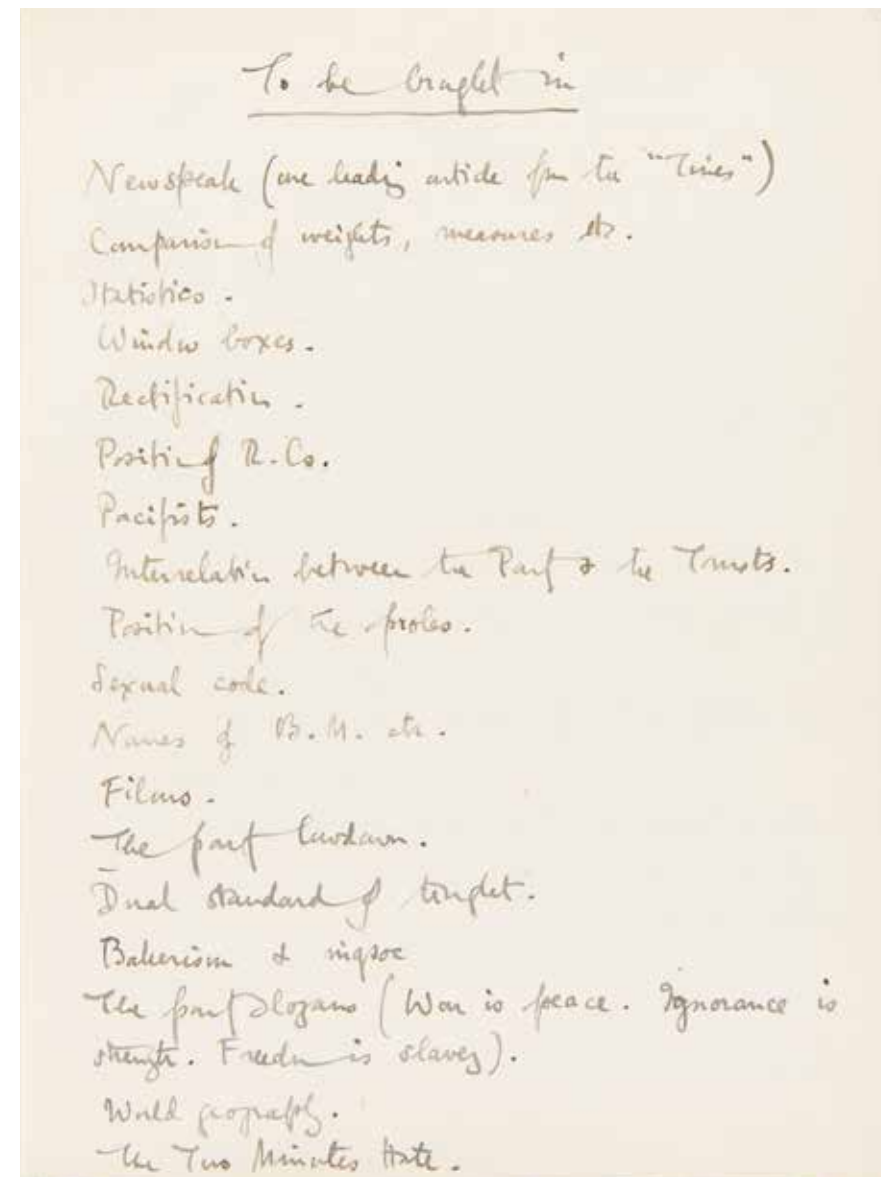 To be brought in
Newspeak (one leading article from the "Times")
Comparison of weights, measures etc.
Statistics.
Window boxes.
Rectification.
Position of R.Cs.
Pacifists.
Interrelation between the Party & the Trusts.
Position of the proles.
Sexual code.
Names of B.M. etc.
Films.
The party lowdown.
Dual standard of thought.
Bakerism & ingsoc
The party slogans (War is peace. Ignorance is
strength. Freedom is slavery).
World geography.
The Two Minutes Hate.